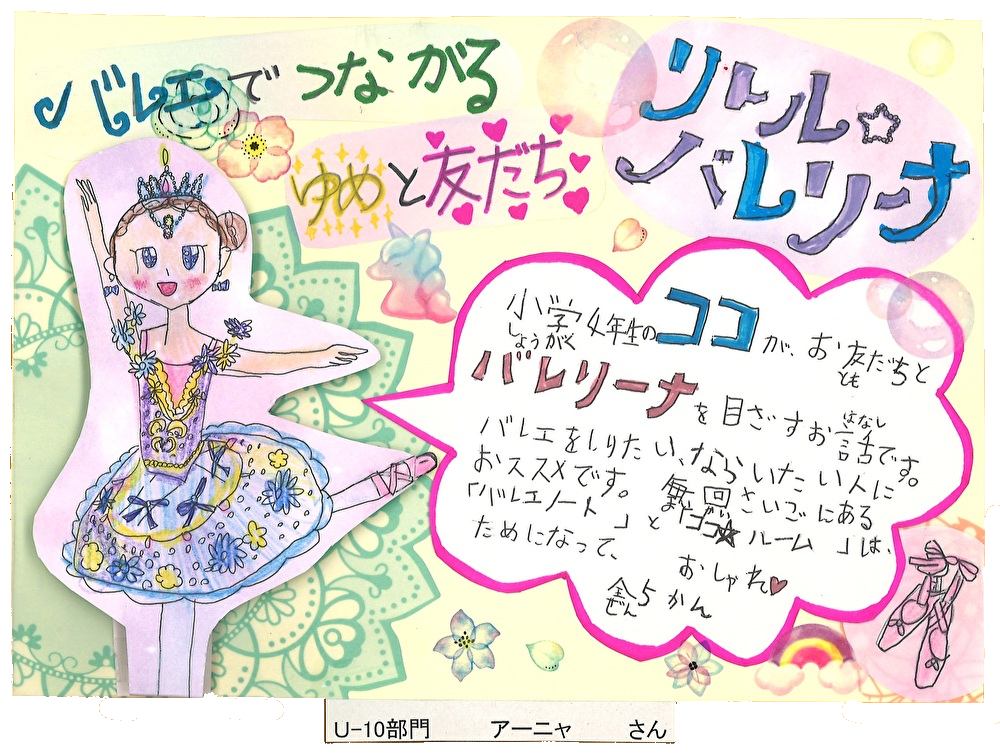 バレエでつながる
ゆめと友だち
リトル☆
バレリーナ
小学4年生のココが、お友だちと
しょうがく
とも
バレリーナを目ざすお話です。
はなし
バレエをしりたい、ならいたい人に
おススメです。毎回さいごにある
まいかい
「バレエノート」と「ココ☆ルーム」は、
ためになって、おしゃれ♥
全5かん
ぜん
U-10部門 アーニャ さん